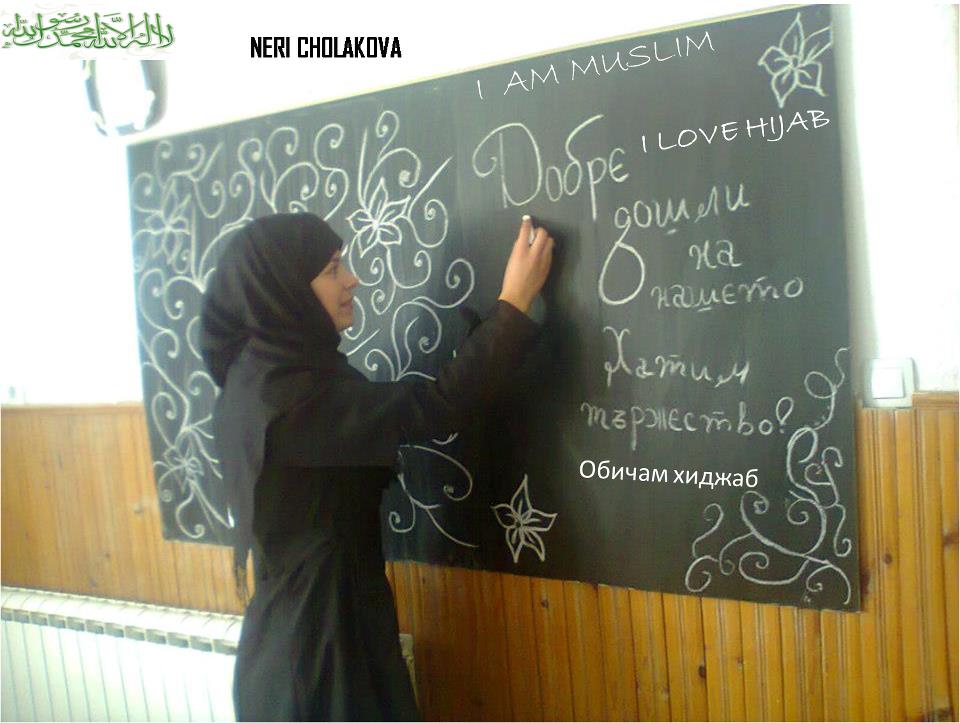 لا اله الا الله محمد رسول الله
NERI CHOLAKOVA
I AM MUSLIM
I LOVE HIJAB
Добре
дошли
на
нашето
Хатим
тържество!
Обичам хиджаб